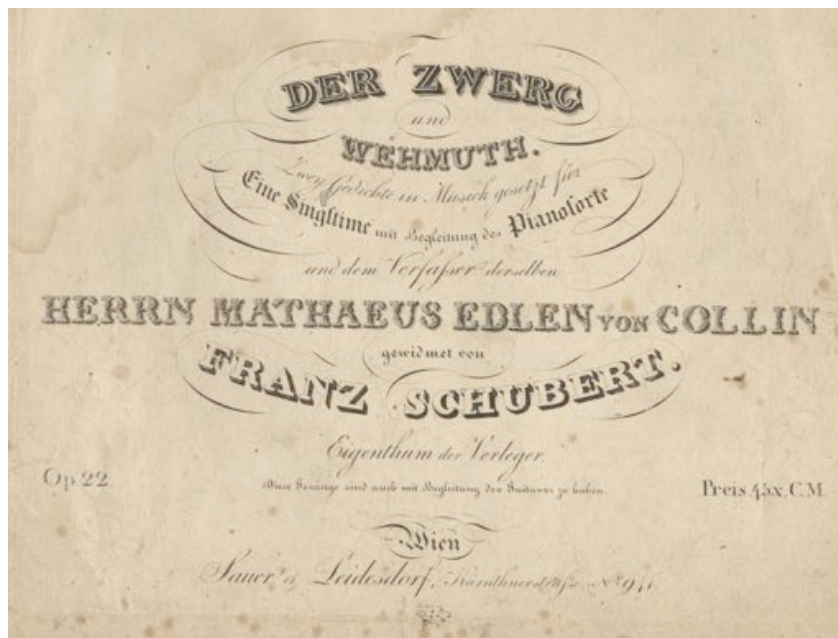 DER ZWERG
und
WEHMUTH.
Zwey Gedichte in Musick gesetzt für
Eine Singstime mit Begleitung des Pianoforte
und dem Verfasser derselben
HERRN MATHAEUS EDLEN VON COLLIN
gewidmet von
FRANZ SCHUBERT.
Eigenthum der Verleger.
Op. 22
Diese Gesänge sind auch mit Begleitung der Guitarre zu haben
Preis 45x. C.M.
Wien
Sauer & Leidesdorf, Kärnthnerstrasse No 941